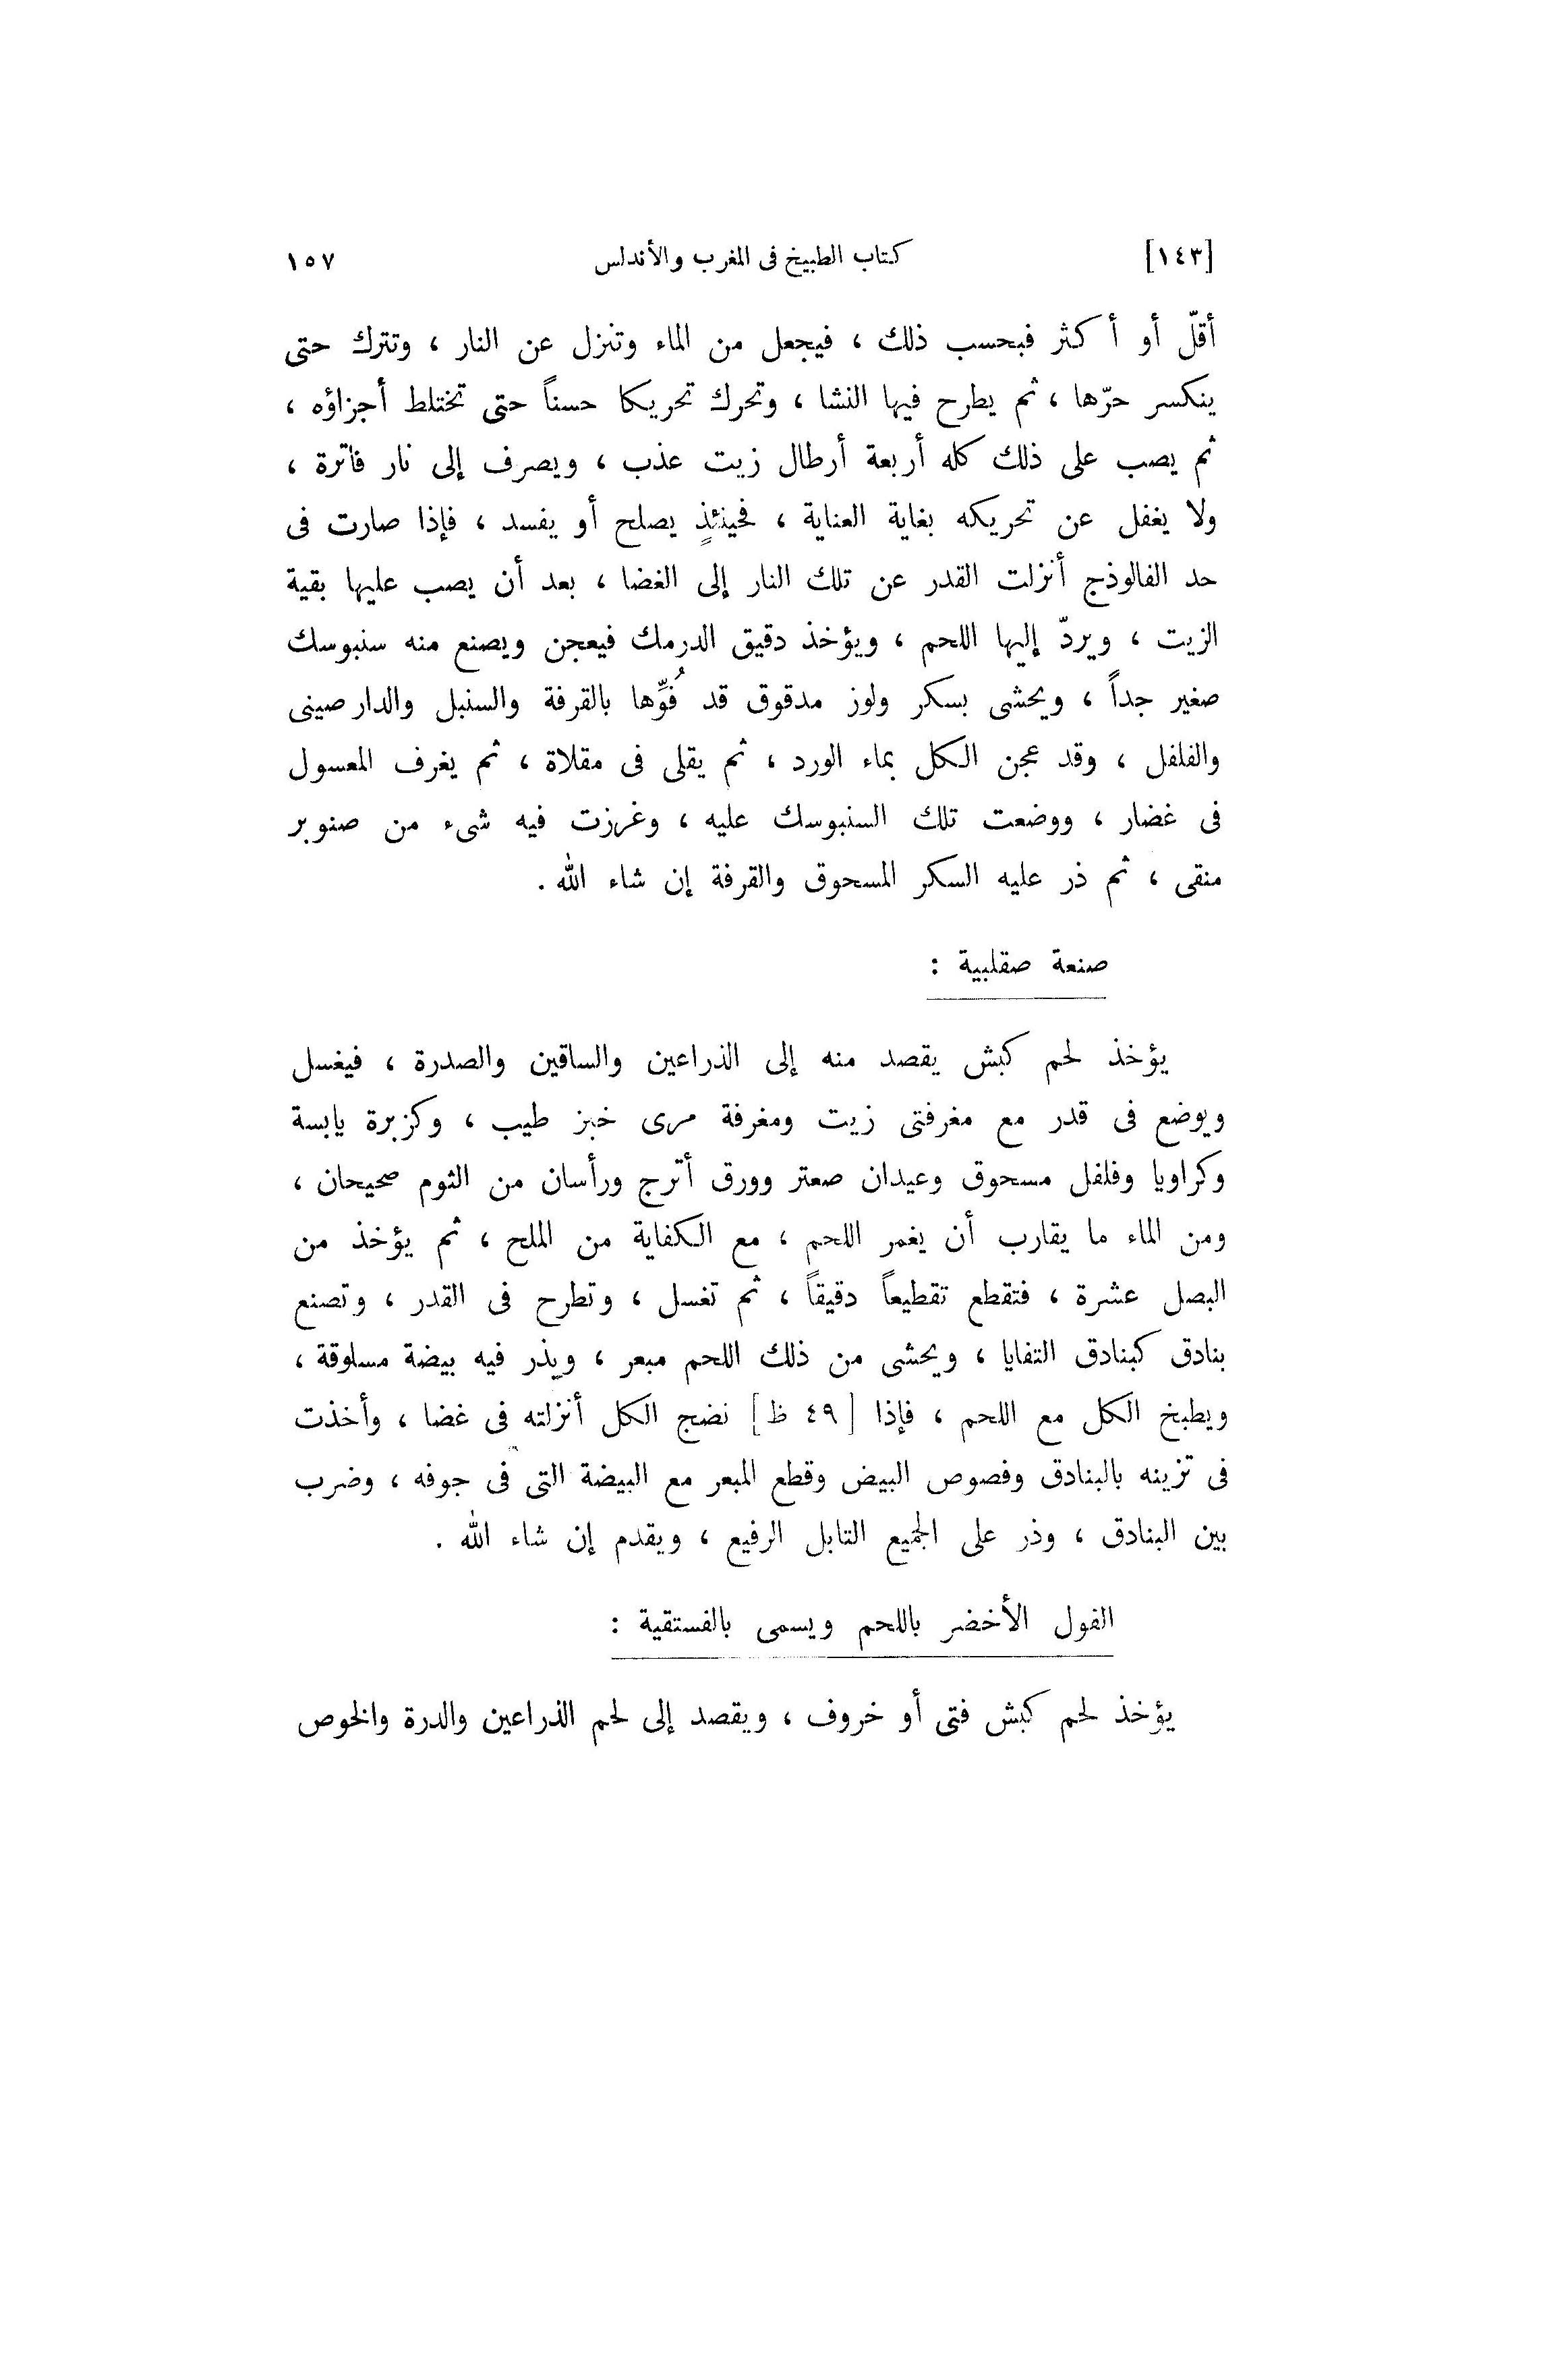 [١٤٣] كتاب الطبيخ فى المغرب والأندلس ١٥٧
أقلّ أو أكثر فبحسب ذلك ، فيجعل من الماء وتنزل عن النار ، وتترك حتى
ينكسر حرّها ، ثم يطرح فيها النشا ، وتحرك تحريكا حسناً حتى تختلط أجزاؤه ،
ثم يصب على ذلك كله أربعة أرطال زيت عذب ، ويصرف إلى نار فاترة ،
ولا يغفل عن تحريكه بغاية العناية ، فحينئذٍ يصلح أو يفسد ، فإذا صارت فى
حد الفالوذج أنزلت القدر عن تلك النار إلى الغضا ، بعد أن يصب عليها بقية
الزيت ، ويردّ إليها اللحم ، ويؤخذ دقيق الدرمك فيعجن ويصنع منه سنبوسك
صغير جداً ، ويحشى بسكر ولوز مدقوق قد فُوِّها بالقرفة والسنبل والدار صينى
والفلفل ، وقد عجن الكل بماء الورد ، ثم يقلى فى مقلاة ، ثم يغرف المعسول
فى غضار ، ووضعت تلك السنبوسك عليه ، وغرزت فيه شىء من صنوبر
منقى ، ثم ذر عليه السكر المسحوق والقرفة إن شاء الله .
صنعة صقلبية :
يؤخذ لحم كبش يقصد منه إلى الذراعين والساقين والصدرة ، فيغسل
ويوضع فى قدر مع مغرفتى زيت ومغرفة مرى خبز طيب ، وكزبرة يابسة
وكراويا وفلفل مسحوق وعيدان صعتر وورق أترج ورأسان من الثوم صحيحان ،
ومن الماء ما يقارب أن يغمر اللحم ، مع الكفاية من الملح ، ثم يؤخذ من
البصل عشرة ، فتقطع تقطيعاً دقيقاً ، ثم تغسل ، وتطرح فى القدر ، وتصنع
بنادق كبنادق التفايا ، ويحشى من ذلك اللحم مبعر ، ويذر فيه بيضة مسلوقة ،
ويطبخ الكل مع اللحم ، فإذا [ ٤٩ ظ ] نضج الكل أنزلته فى غضا ، وأخذت
فى تزينه بالبنادق وفصوص البيض وقطع المبعر مع البيضة التى فى جوفه ، وضرب
بين البنادق ، وذر على الجميع التابل الرفيع ، ويقدم إن شاء الله .
الفول الأخضر باللحم ويسمى بالفستقية :
يؤخذ لحم كبش فتى أو خروف ، ويقصد إلى لحم الذراعين والدرة والخوص